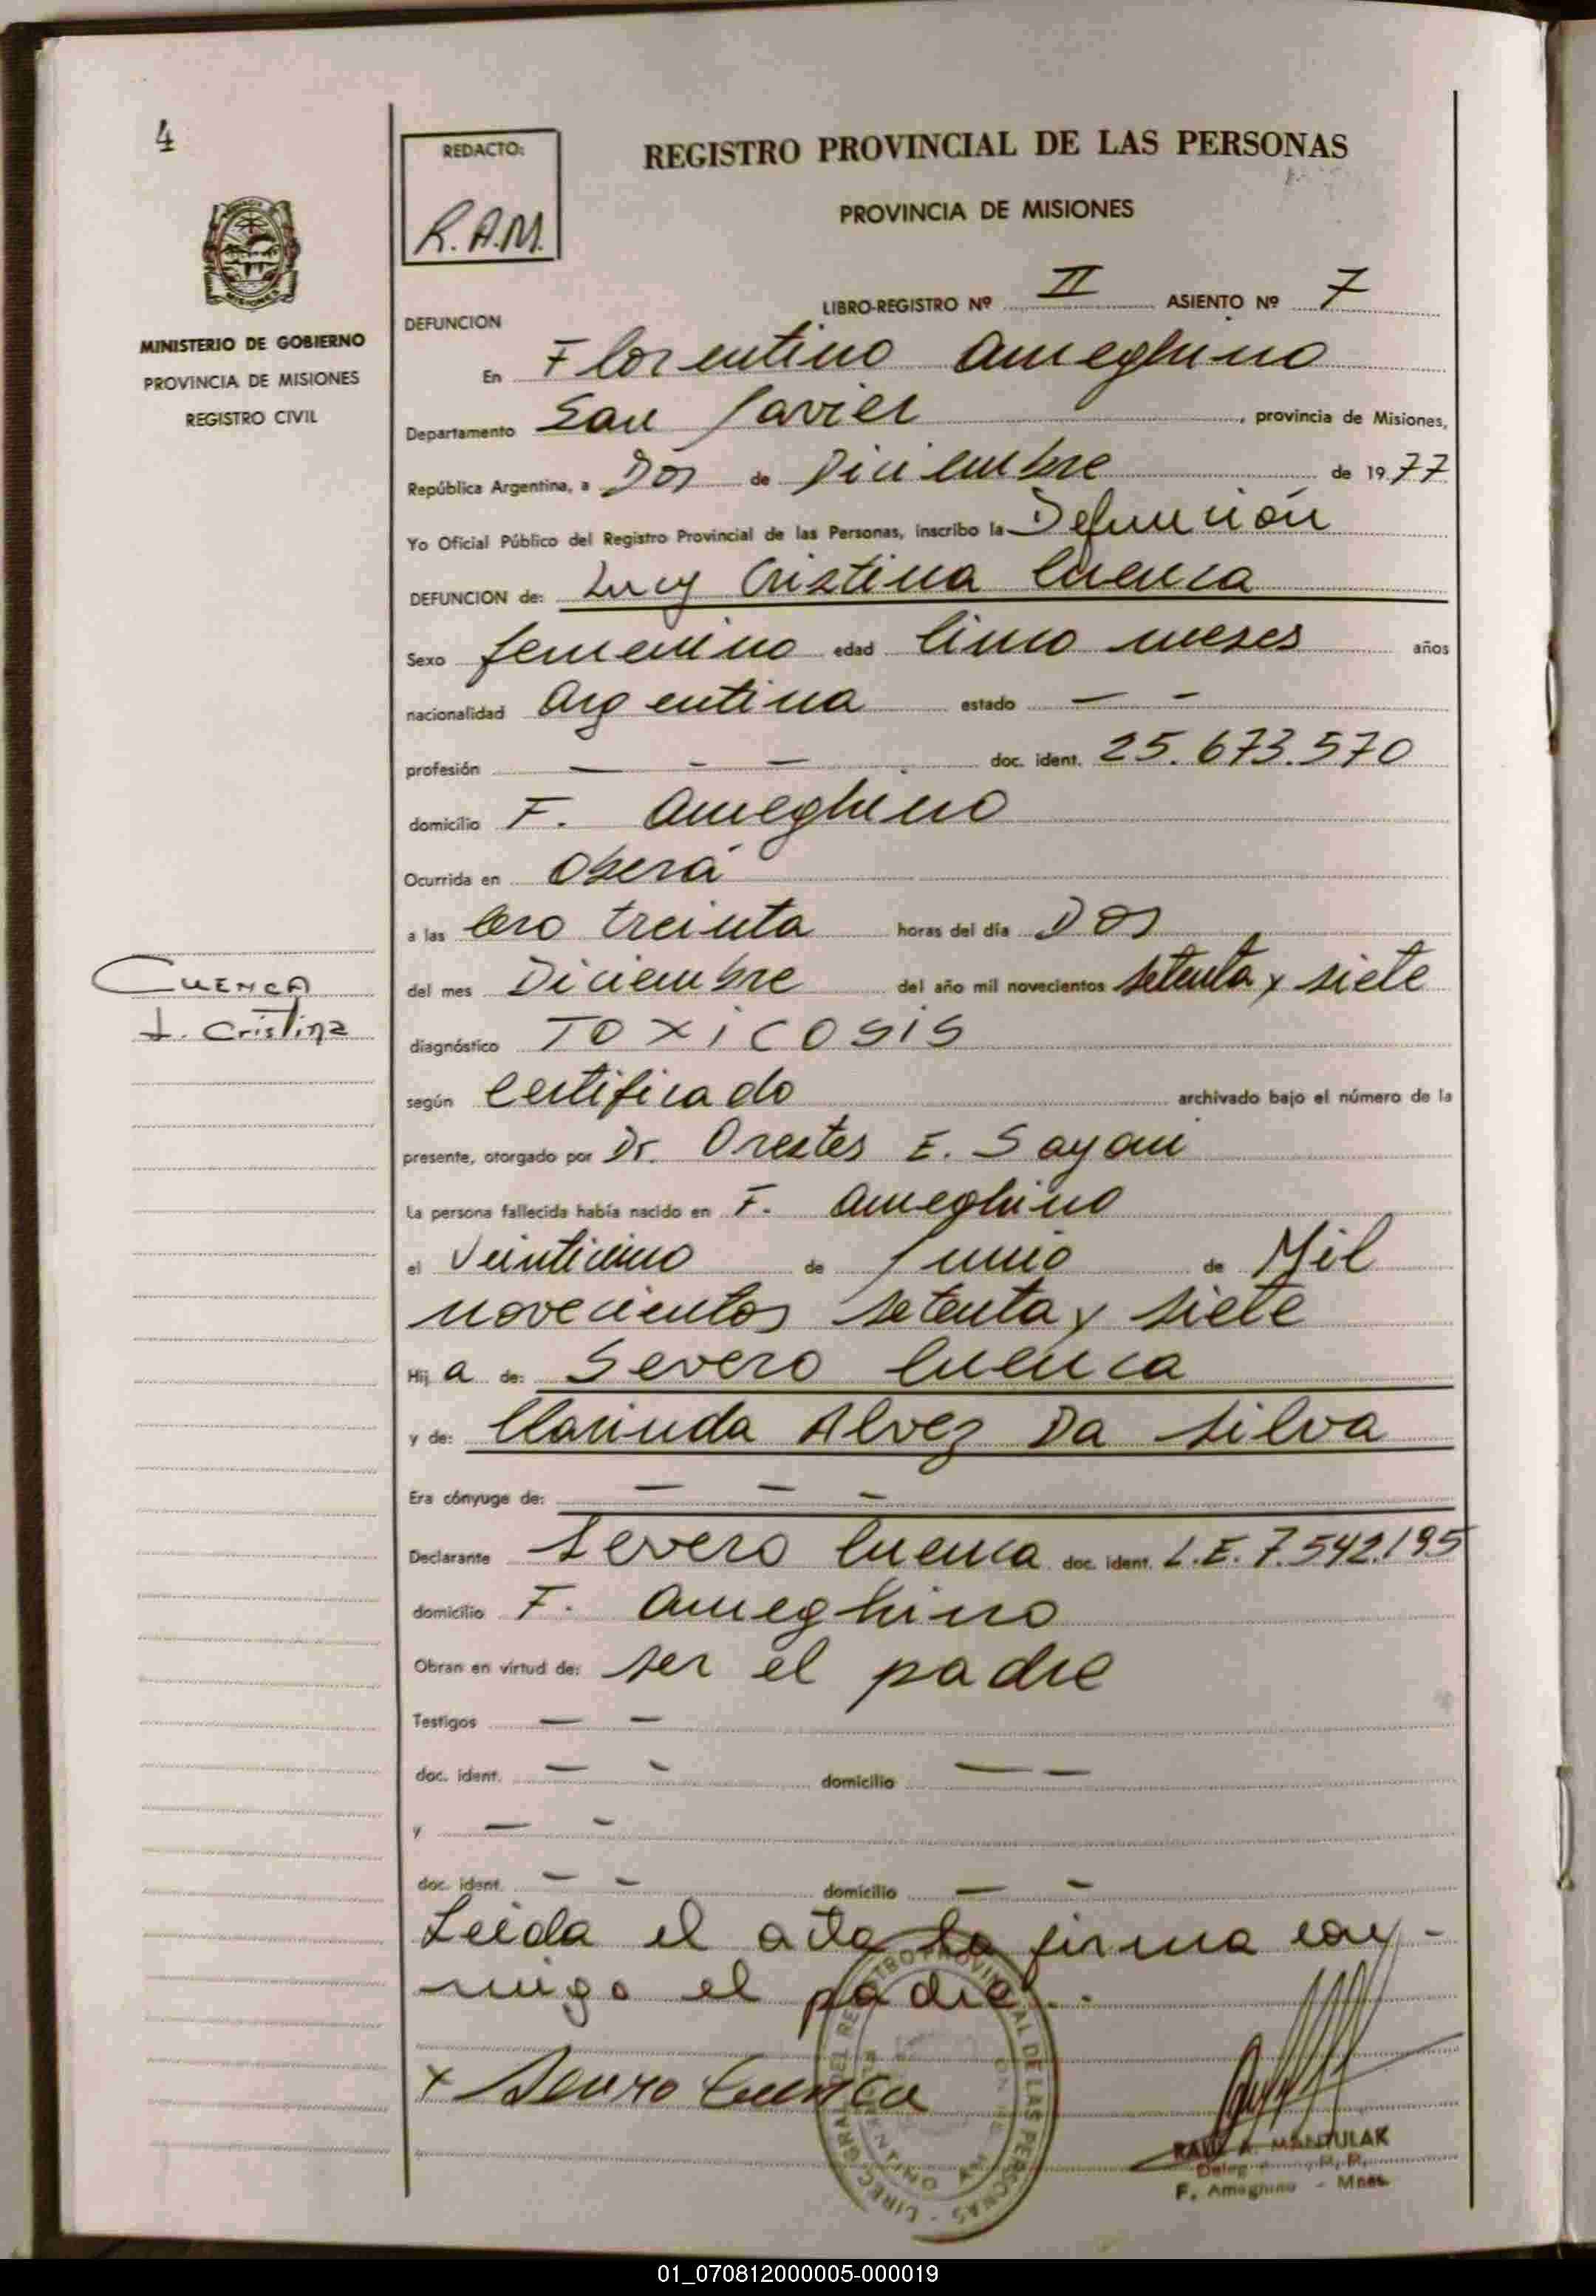 4
REDACTO:
R.A.M.
REGISTRO PROVINCIAL DE LAS PERSONAS
PROVINCIA DE MISIONES
MISIONES
MINISTERIO DE GOBIERNO
PROVINCIA DE MISIONES
REGISTRO CIVIL
LIBRO-REGISTRO Nº II ASIENTO Nº 7
DEFUNCION
En Florentino Ameghino
Departamento San Javier, provincia de Misiones,
República Argentina, a Dos de Diciembre de 1977
Yo Oficial Público del Registro Provincial de las Personas, inscribo la Defunción
DEFUNCION de: Lucy Cristina Cuenca
Sexo femenino edad Cinco meses años
nacionalidad Argentina estado — -
profesión — - — doc. ident. 25.673.570
domicilio F. Ameghino
Ocurrida en Oberá
a las Cero treinta horas del día Dos
CUENCA
L. Cristina
del mes Diciembre del año mil novecientos setenta y siete
diagnóstico TOXICOSIS
según Certificado archivado bajo el número de la
presente, otorgado por Dr. Orestes E. Sayani
La persona fallecida había nacido en F. Ameghino
el Veinticinco de Junio de Mil
novecientos setenta y siete
Hija de: Severo Cuenca
y de: Clarinda Alvez Da Silva
Era cónyuge de: — — -
Declarante Severo Cuenca doc. ident. L.E. 7.542.195
domicilio F. Ameghino
Obran en virtud de: ser el padre
Testigos — —
doc. ident. — - domicilio — —
y — -
doc. ident. — - domicilio — -
Leida el acta la firma con-
migo el padre.
x Severo Cuenca
DIRECC. GRAL. DEL REGISTRO PROVINCIAL DE LAS PERSONAS
RAUL A. MANTULAK
Deleg. R. P.
F. Ameghino - Mnes.
01_070812000005-000019